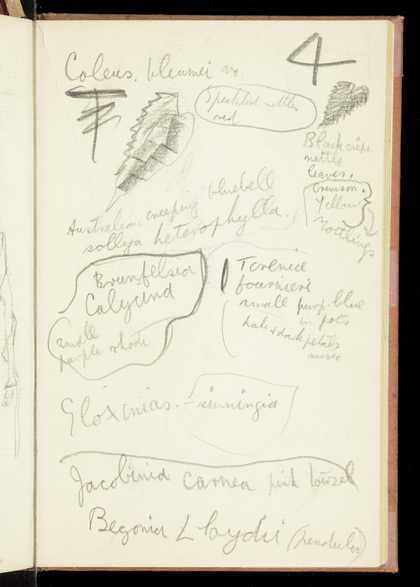 Coleus. blumei
4
Speckled nettle
red
Black crêpe
nettle
leaves.
Crimson.
Yellow
nothings
Australian creeping bluebell
sollya heterophylla.
Brunfelsia
Calycina
small
purple
Torenia
fournieri
small purp-blue
in pots
petals
Gloxinias. - sinningia
Jacobinia carnea pink
Begonia Lloydii (pendula)